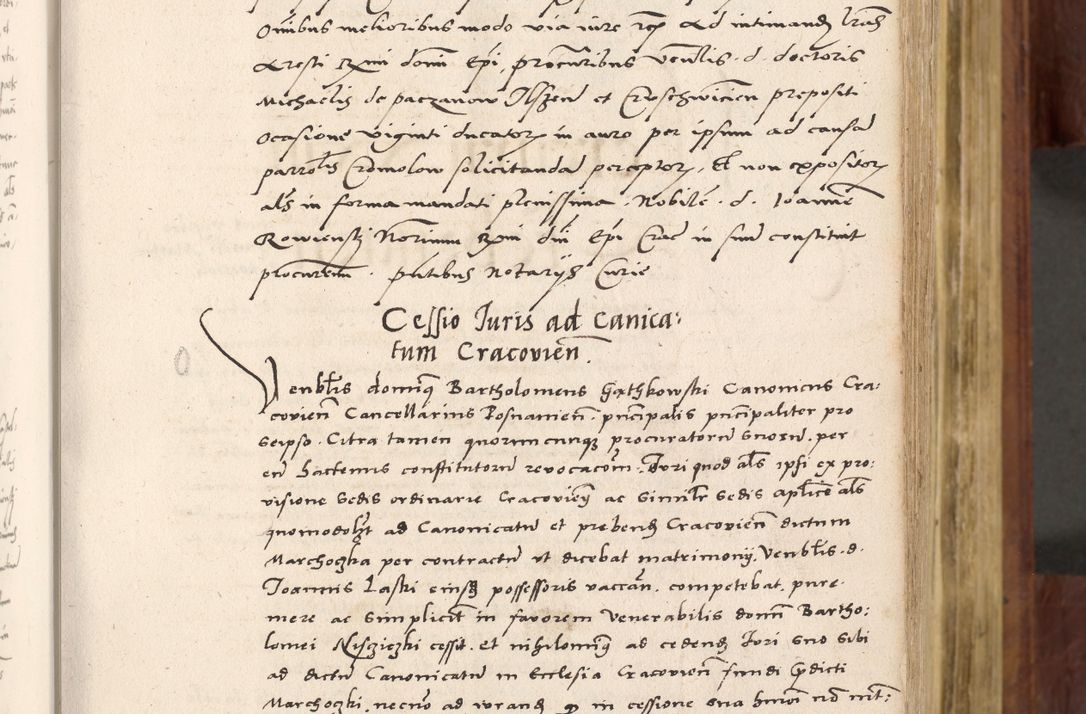 Omibus melioribus modo via iure etc Ad intimandum lras
Aresti Rmi domi Epi, procuribus venlis d. doctoris
Michaelis de paczanow Ilszen et Cruschwicien prepositi
Ocasione viginti ducator in auro per ipsum ad causa
parrolis Cromolow solicitanda perceptor, Et non expositor
als in forma mandati plenissima. Nobile. d. Ioanne
Rowienski Norium Rmi dni Epi Crac in sium constituit
procurem. pntibus Notarys Curie
Cessio Iuris ad Canica:
tum Cracovien.
Venblis dominq Bartholomeus Gathkowski Canonicus Cra:
covien Cancellarius Posnanien. principalis principaliter pro
seipso. Citra tamen quorumcunqz procuratoru suoru. per
eu hactenus constitutoru revocacom. Iuri quod als ipsi ex pro:
visione sedis ordinarie Cracovien ac similr sedis aplice als
quomodolzt ad Canonicatu et prebend Cracovien dictum
Marchoczka per contractu ut dicebat matrimony, Venblis. d.
Ioannis Laski eiusq possessoris vaccan. competebat, pure.
mere ac simplicit in favorem Venerabilis domi Bartho:
lomei Niscziczki cessit. Et nihilominq ad cedend Iuri suo sibi
ad dictu Canonicatu in Ecclesia Cracovien fundi predicti
Marchoczki, necno ad iurand qp in cessione sua